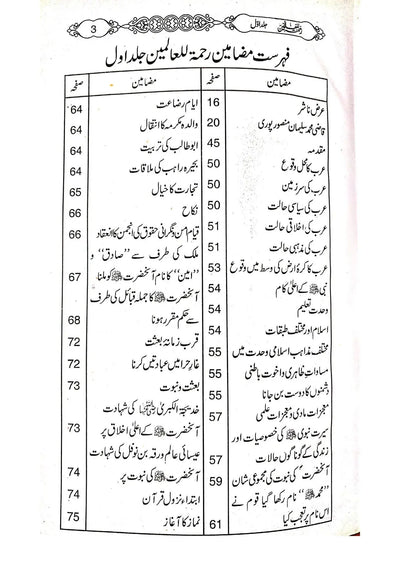 جلد اوّل
3
فہرست مضامین رحمۃ للعالمین جلد اول
مضامین صفحہ
عرض ناشر 16
قاضی محمد سلمان منصور پوری 20
مقدمہ 45
عرب کا محل وقوع 50
عرب کی سرزمین 50
عرب کی سیاسی حالت 50
عرب کی اخلاقی حالت 51
عرب کی مذہبی حالت 51
عرب کا کرۂ ارض کی وسط میں وقوع 53
نبی ﷺ کے اعلیٰ کام 54
وحدت تعلیم 54
اسلام اور مختلف طبقات 54
مختلف مذاہب اسلامی وحدت میں 55
مساوات ظاہری و اخوت باطنی 55
دشمنوں کا دوست بن جانا 55
معجزات مادی و معجزات علمی 57
سیرت نبوی ﷺ کی خصوصیات اور
زندگی کے گوناگوں حالات 57
آنحضرت ﷺ کی نبوت کی مجموعی شان 59
”محمد ﷺ“ نام رکھا گیا قوم نے
اس نام پر تعجب کیا 61
مضامین صفحہ
ایام رضاعت 64
والدہ مکرمہ کا انتقال 64
ابو طالب کی تربیت 64
بحیرہ راہب کی ملاقات 64
تجارت کا خیال 65
نکاح 66
قیام امن و نگرانی حقوق کی انجمن کا انعقاد 66
ملک کی طرف سے ”صادق“ و
”امین“ کا نام آنحضرت ﷺ کو ملنا 67
آنحضرت ﷺ کا جملہ قبائل کی طرف
سے حکم مقرر ہونا 68
قرب زمانۂ بعثت 72
غار حرا میں عبادتیں کرنا 72
بعثت و نبوت 73
خدیجۃ الکبریٰ کی شہادت
آنحضرت ﷺ کے اعلیٰ اخلاق پر 73
عیسائی عالم ورقہ بن نوفل کی شہادت
آنحضرت ﷺ کی نبوت پر 74
ابتداء نزول قرآن 74
نماز کا آغاز 75